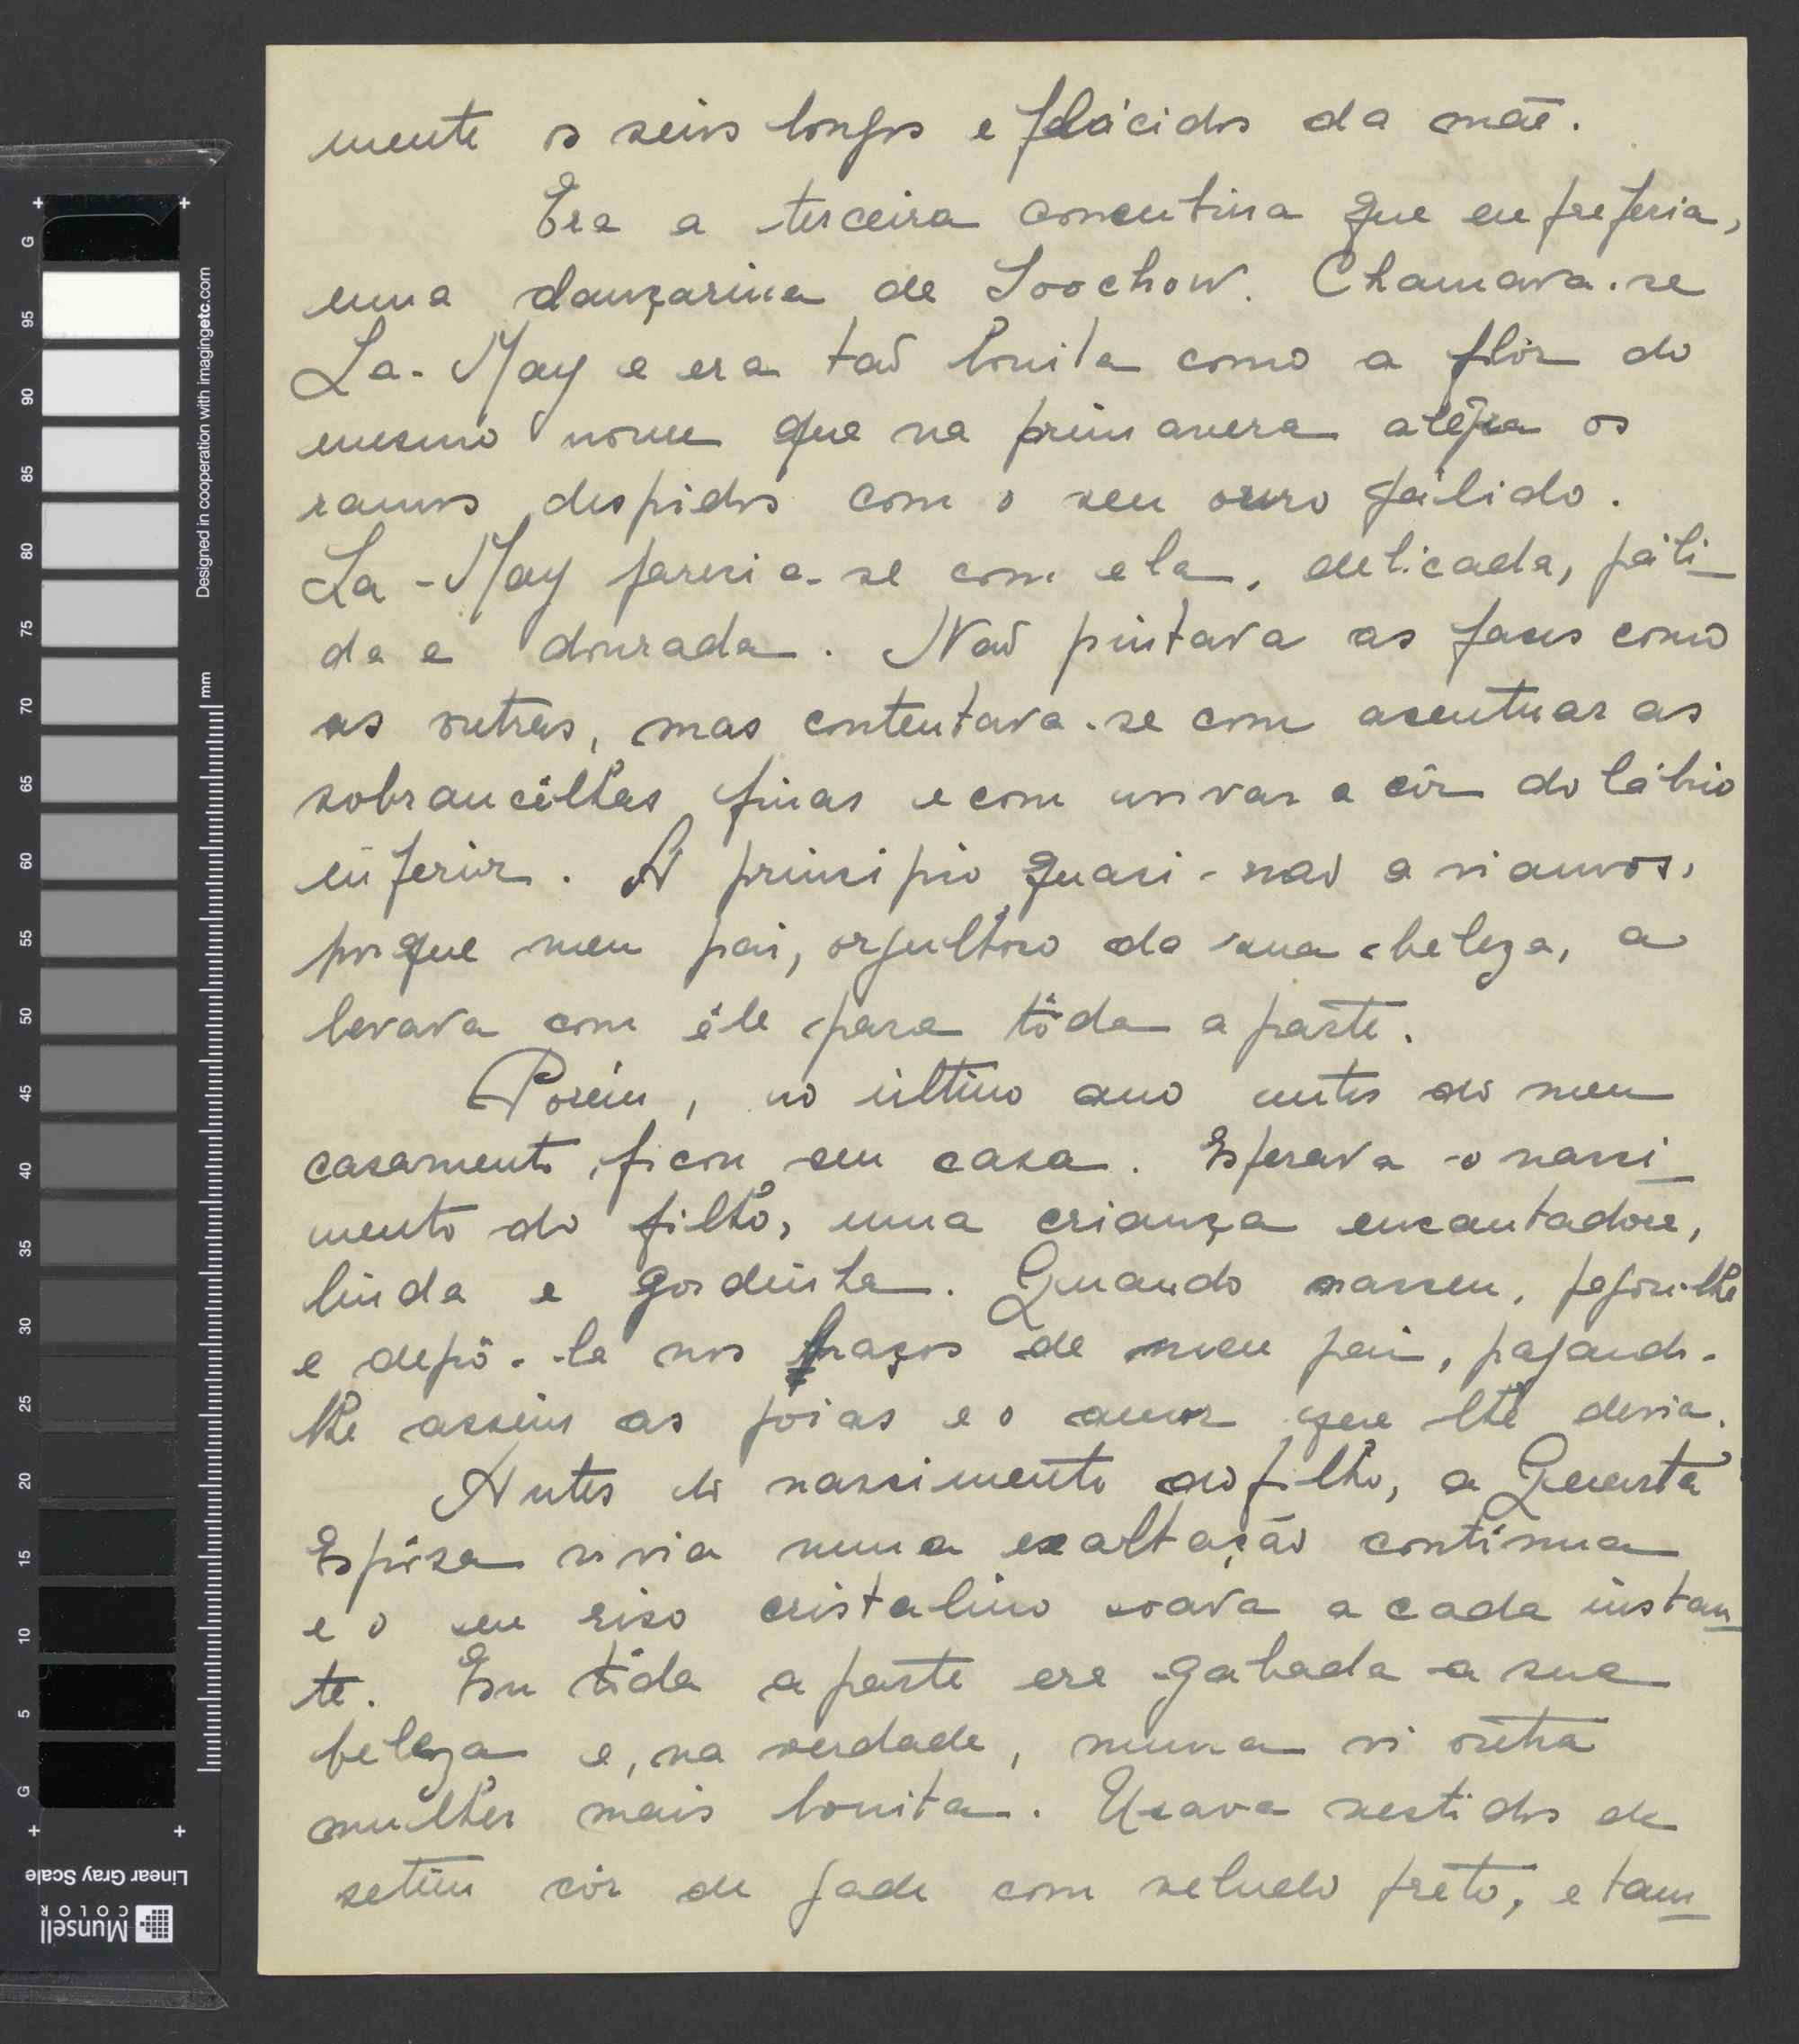 mente os seios longos e flácidos da mãe.
Era a terceira concubina que eu preferia,
uma dançarina de Soochow. Chamava-se
La-May e era tão bonita como a flôr do
mesmo nome que na primavera alegra os
ramos despidos com o seu ouro pálido.
La-May parecia-se com ela, delicada, páli-
da e dourada. Não pintava as faces como
as outras, mas contentava-se com acentuar as
sobrancêlhas finas e com avivar a côr do lábio
inferior. A principio quasi-não a viamos,
porque meu pai, orgulhoso da sua beleza, a
levava com êle para tôda a parte.
Porém, no último ano antes do meu
casamento, ficou em casa. Esperava o nasci-
mento do filho, uma criança encantadora,
linda e gordinha. Quando nasceu, pegou-lhe
e depô-lo nos braços de meu pai, pagando-
lhe assim as joias e o amor que lhe devia.
Antes do nascimento do filho, a Quarta
Espôsa vivia numa exaltação contínua
e o seu riso cristalino soava a cada instan-
te. Em tôda a parte era gabada a sua
beleza e, na verdade, nunca vi outra
mulher mais bonita. Usava vestidos de
setim côr de jade com veludo preto, e tam-
Designed in cooperation with imagingetc.com
mm
G
95
90
85
80
75
70
65
60
55
50
45
40
35
30
25
20
15
10
5
G
Linear Gray Scale
Munsell
COLOR